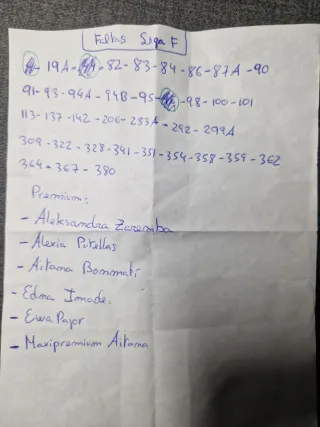 Faltas Liga F
19A - - 82 - 83 - 84 - 86 - 87A - 90
91 - 93 - 94A - 94B - 95 - - 98 - 100 - 101
113 - 137 - 142 - 206 - 253A - 292 - 299A
309 - 322 - 328 - 341 - 351 - 354 - 358 - 359 - 362
364 - 367 - 380
Premium:
- Aleksandra Zaremba
- Alexia Putellas
- Aitana Bommati
- Edna Imade.
- Ewa Pajor
- Maxipremium Aitana